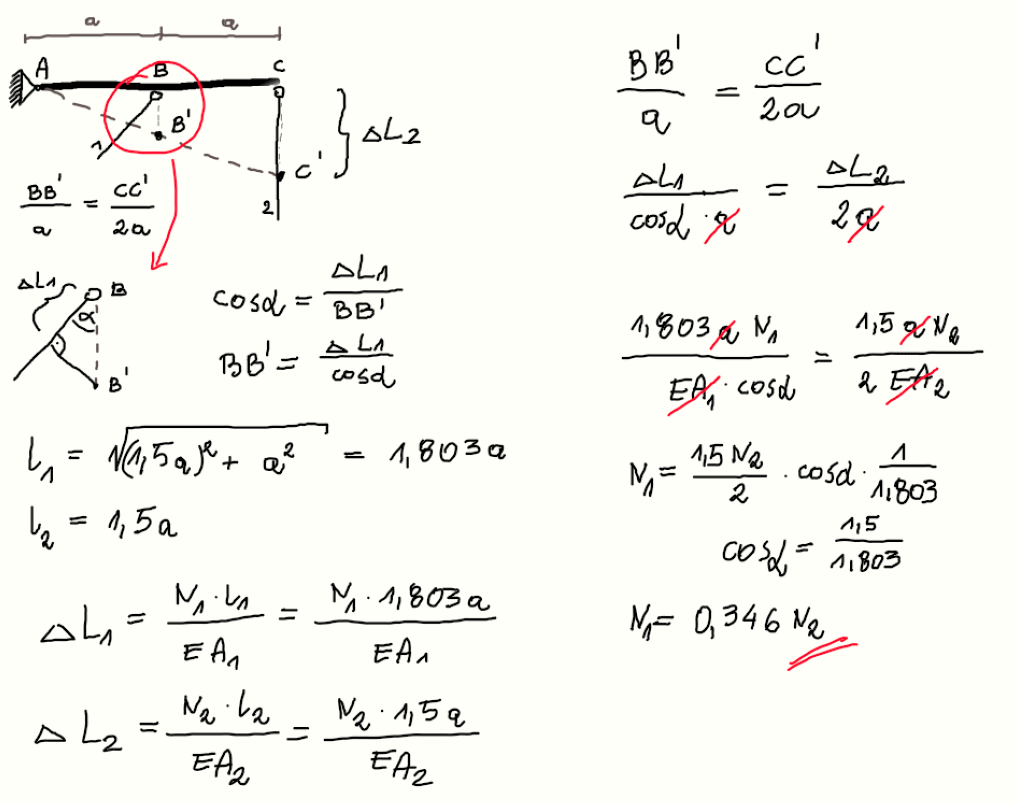 a a
A B C
B' ΔL2
1 C'
2
BB'/a = CC'/2a
ΔL1 B
α
B'
cosα = ΔL1/BB'
BB' = ΔL1/cosα
l1 = √((1,5a)² + a²) = 1,803a
l2 = 1,5a
ΔL1 = N1·l1/EA1 = N1·1,803a/EA1
ΔL2 = N2·l2/EA2 = N2·1,5a/EA2
BB'/a = CC'/2a
ΔL1/cosα·a = ΔL2/2a
1,803a N1/EA1·cosα = 1,5a N2/2 EA2
N1 = 1,5 N2/2 · cosα · 1/1,803
cosα = 1,5/1,803
N1 = 0,346 N2